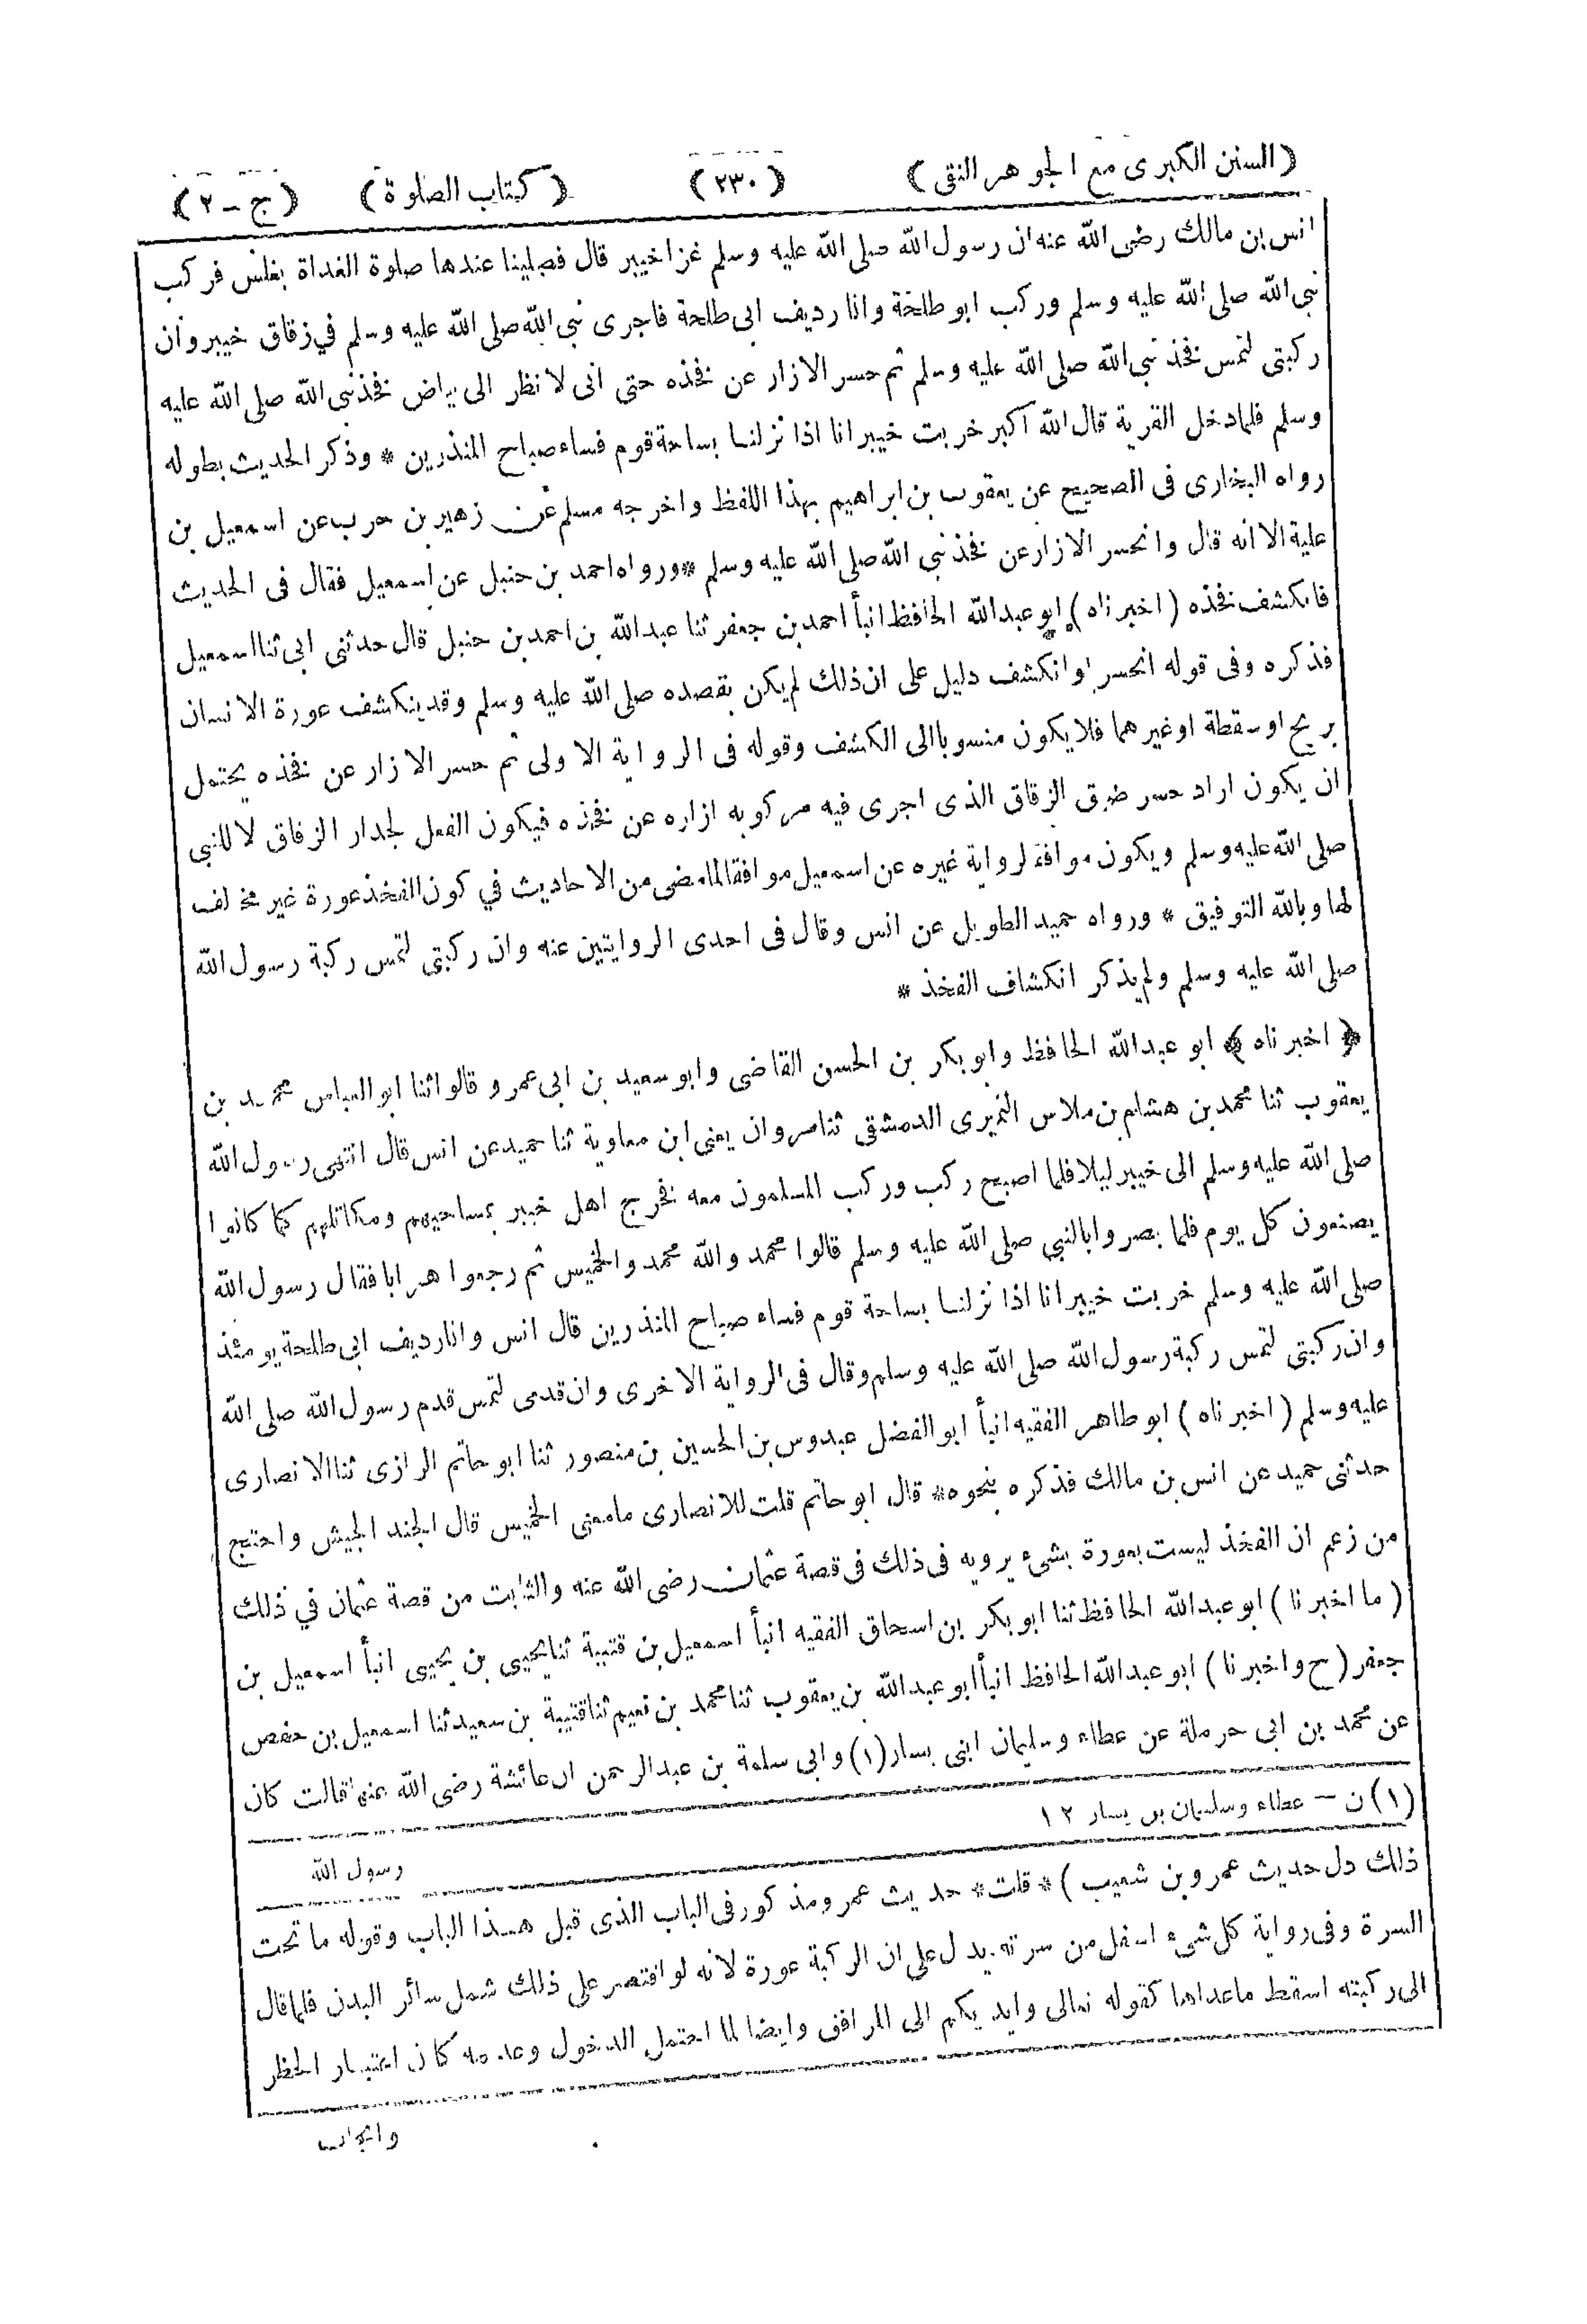 (السنن الكبرى مع الجوهر النقى) (٢٣٠) (كتاب الصلوة) (ج-٢)
انس بن مالك رضى الله عنه ان رسول الله صلى الله عليه وسلم غزا خيبر قال فصلينا عندها صلوة الغداة بغلس فركب
نبى الله صلى الله عليه وسلم وركب ابو طلحة وانا رديف ابى طلحة فاجرى نبى الله صلى الله عليه وسلم في زقاق خيبر وان
ركبتى لتمس فخذ نبى الله صلى الله عليه وسلم ثم حسر الازار عن فخذه حتى انى لانظر الى بياض فخذ نبى الله صلى الله عليه
وسلم فلما دخل القرية قال الله اكبر خربت خيبر انا اذا نزلنا بساحة قوم فساء صباح المنذرين * وذكر الحديث بطوله
رواه البخارى فى الصحيح عن يعقوب بن ابراهيم بهذا اللفظ واخرجه مسلم عن زهير بن حرب عن اسمعيل بن
علية الا انه قال وانحسر الازار عن فخذ نبى الله صلى الله عليه وسلم * ورواه احمد بن حنبل عن اسمعيل فقال فى الحديث
فانكشف فخذه (اخبرناه) ابو عبدالله الحافظ انبأ احمد بن جعفر ثنا عبدالله بن احمد بن حنبل قال حدثنى ابى ثنا اسمعيل
فذكره وفى قوله انحسر او انكشف دليل على ان ذلك لم يكن بقصده صلى الله عليه وسلم وقد ينكشف عورة الانسان
بريح او سقطة او غيرهما فلا يكون منسوبا الى الكشف وقوله فى الرواية الاولى ثم حسر الازار عن فخذه يحتمل
ان يكون اراد حسر ضيق الزقاق الذى اجرى فيه مركوبه ازاره عن فخذه فيكون الفعل لجدار الزقاق لا للنبي
صلى الله عليه وسلم ويكون موافقا لرواية غيره عن اسمعيل موافقا لما مضى من الاحاديث في كون الفخذ عورة غير مخالف
لها وبالله التوفيق * ورواه حميد الطويل عن انس وقال فى احدى الروايتين عنه وان ركبتى لتمس ركبة رسول الله
صلى الله عليه وسلم ولم يذكر انكشاف الفخذ *
﴿اخبرناه﴾ ابو عبدالله الحافظ وابو بكر بن الحسن القاضى وابو سعيد بن ابى عمرو قالوا ثنا ابو العباس محمد بن
يعقوب ثنا محمد بن هشام بن ملاس النميرى الدمشقى ثنا مروان يعنى ابن معاوية ثنا حميد عن انس قال انتهى رسول الله
صلى الله عليه وسلم الى خيبر ليلا فلما اصبح ركب وركب المسلمون معه فخرج اهل خيبر بمساحيهم ومكاتلهم كما كانوا
يصنعون كل يوم فلما بصروا بالنبي صلى الله عليه وسلم قالوا محمد والله محمد والخميس ثم رجعوا هرابا فقال رسول الله
صلى الله عليه وسلم خربت خيبر انا اذا نزلنا بساحة قوم فساء صباح المنذرين قال انس وانا رديف ابى طلحة يومئذ
وان ركبتى لتمس ركبة رسول الله صلى الله عليه وسلم وقال فى الرواية الاخرى وان قدمى لتمس قدم رسول الله صلى الله
عليه وسلم (اخبرناه) ابو طاهر الفقيه انبأ ابو الفضل عبدوس بن الحسين بن منصور ثنا ابو حاتم الرازى ثنا الانصارى
حدثنى حميد عن انس بن مالك فذكره بنحوه * قال ابو حاتم قلت للانصارى ما معنى الخميس قال الجند الجيش واحتج
من زعم ان الفخذ ليست بعورة بشىء يرويه فى ذلك فى قصة عثمان رضى الله عنه والثابت من قصة عثمان في ذلك
(ما اخبرنا) ابو عبدالله الحافظ ثنا ابو بكر بن اسحاق الفقيه انبأ اسمعيل بن قتيبة ثنا يحيى بن يحيى انبأ اسمعيل بن
جعفر (ح واخبرنا) ابو عبدالله الحافظ انبأ ابو عبدالله بن يعقوب ثنا محمد بن نعيم ثنا قتيبة بن سعيد ثنا اسمعيل بن حفص
عن محمد بن ابى حرملة عن عطاء وسليمان ابنى يسار (١) وابى سلمة بن عبدالرحمن ان عائشة رضى الله عنها قالت كان
(١) ن - عطاء وسليمان بن يسار ١٢
رسول الله
ذلك دل حديث عمرو بن شعيب) * قلت * حديث عمرو مذكور فى الباب الذى قبل هذا الباب وقوله ما تحت
السرة وفى رواية كل شىء اسفل من سرته يدل على ان الركبة عورة لانه لو اقتصر على ذلك شمل سائر البدن فلما قال
الى ركبته اسقط ما عداها كقوله تعالى وايديكم الى المرافق وايضا لما احتمل الدخول وعدمه كان اعتبار الحظر
وايجاب